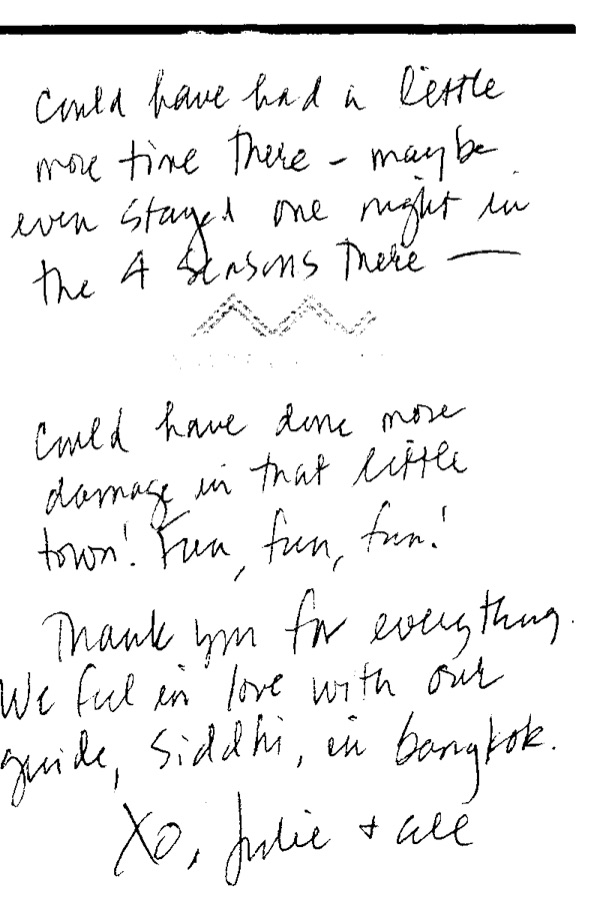 Could have had a little
more time there - maybe
even stayed one night in
the 4 Seasons there —
Could have done more
damage in that little
town! Fun, fun, fun!
Thank you for everything.
We fell in love with our
guide, Siddhi, in bangkok.
XO, Julie + all